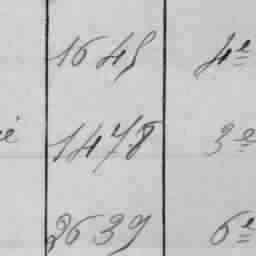 1645 4e
1478 3e
3639 6e